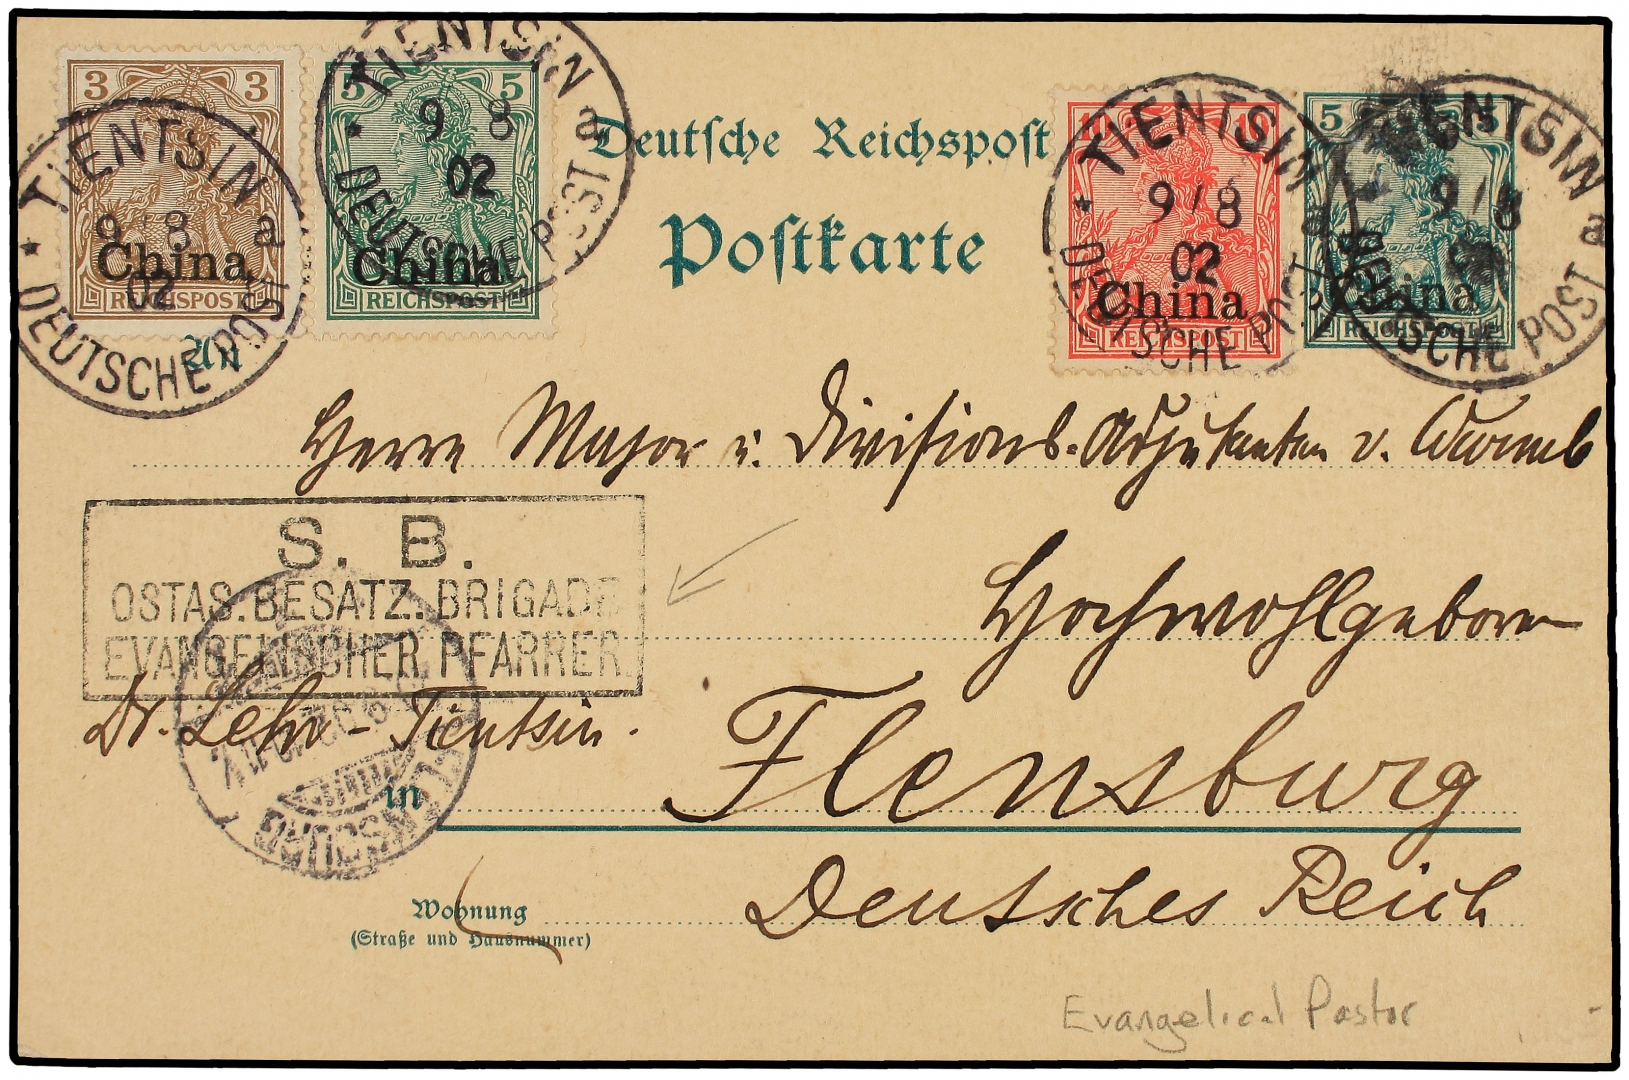 3 3
China
REICHSPOST
TIENTSIN a
9/8
02
DEUTSCHE POST
5 5
China
REICHSPOST
TIENTSIN a
9 8
02
DEUTSCHE POST
Deutsche Reichspost
Postkarte
10 10
China
REICHSPOST
TIENTSIN a
9/8
02
DEUTSCHE POST
5 5
China
REICHSPOST
TIENTSIN a
9/8
DEUTSCHE POST
An
Herrn Major u. Divisions-Adjutanten v. Wurmb
Hochwohlgeboren
S. B.
OSTAS. BESATZ. BRIGADE
EVANGELISCHER PFARRER.
Dr. Lehr - Tientsin.
FLENSBURG
in Flensburg
Deutsches Reich
Wohnung
(Straße und Hausnummer)
Evangelical Pastor